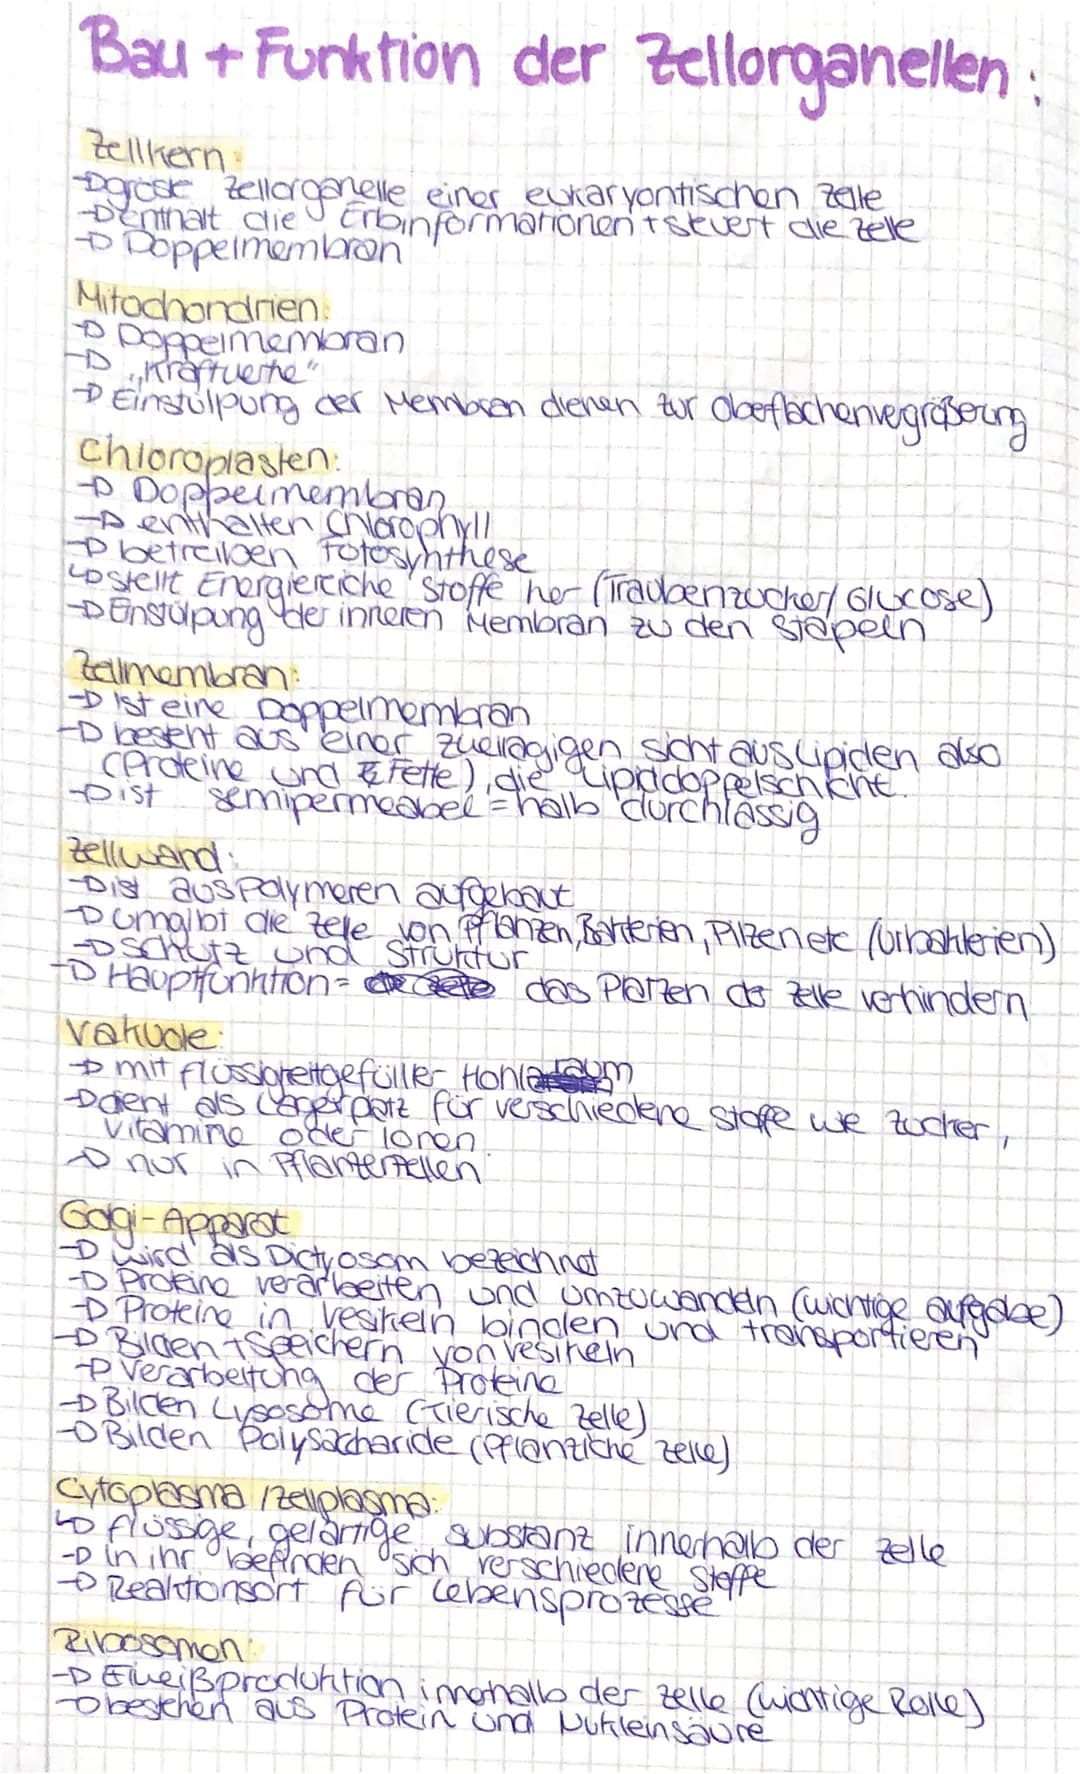 Bau + Funktion der Zellorganellen:
Zellkern:
→ große Zellorganelle einer eukaryontischen Zelle
→ enthält die Erbinformationen + steuert die Zelle
→ Doppelmembran
Mitochondrien:
→ Doppelmembran
→ „Kraftwerke“
→ Einstülpung der Membran dienen zur Oberflächenvergrößerung
Chloroplasten:
→ Doppelmembran
→ enthalten Chlorophyll
→ betreiben Fotosynthese
↳ stellt Energiereiche Stoffe her (Traubenzucker/Glucose)
→ Einstülpung der inneren Membran zu den Stapeln
Zellmembran:
→ ist eine Doppelmembran
→ besteht aus einer zweilagigen Sicht aus Lipiden also
(Proteine und Fette), die Lipiddoppelschicht.
→ ist semipermeabel = halb durchlässig
Zellwand:
→ ist aus Polymeren aufgebaut
→ umgibt die Zelle von Pflanzen, Bakterien, Pilzen etc (Urbakterien)
→ Schutz und Struktur
→ Hauptfunktion = das Platzen der Zelle verhindern
Vakuole:
→ mit flüssigkeitgefüllter Hohlraum
→ dient als Lagerplatz für verschiedene Stoffe wie Zucker,
Vitamine oder Ionen
→ nur in Pflanzenzellen
Golgi-Apparat
→ wird als Dictyosom bezeichnet
→ Proteine verarbeiten und umzuwandeln (wichtige aufgabe)
→ Proteine in Vesikeln binden und transportieren
→ Bilden + Speichern von Vesikeln
→ Verarbeitung der Proteine
→ Bilden Lysosome (Tierische Zelle)
→ Bilden Polysaccharide (Pflanzliche Zelle)
Cytoplasma / Zellplasma:
↳ flüssige, gelartige substanz innerhalb der Zelle
→ in ihr befinden sich verschiedene Stoffe
→ Reaktionsort für Lebensprozesse
Ribosomen:
→ Eiweißproduktion innerhalb der Zelle (wichtige Rolle)
→ bestehen aus Protein und Nukleinsäure